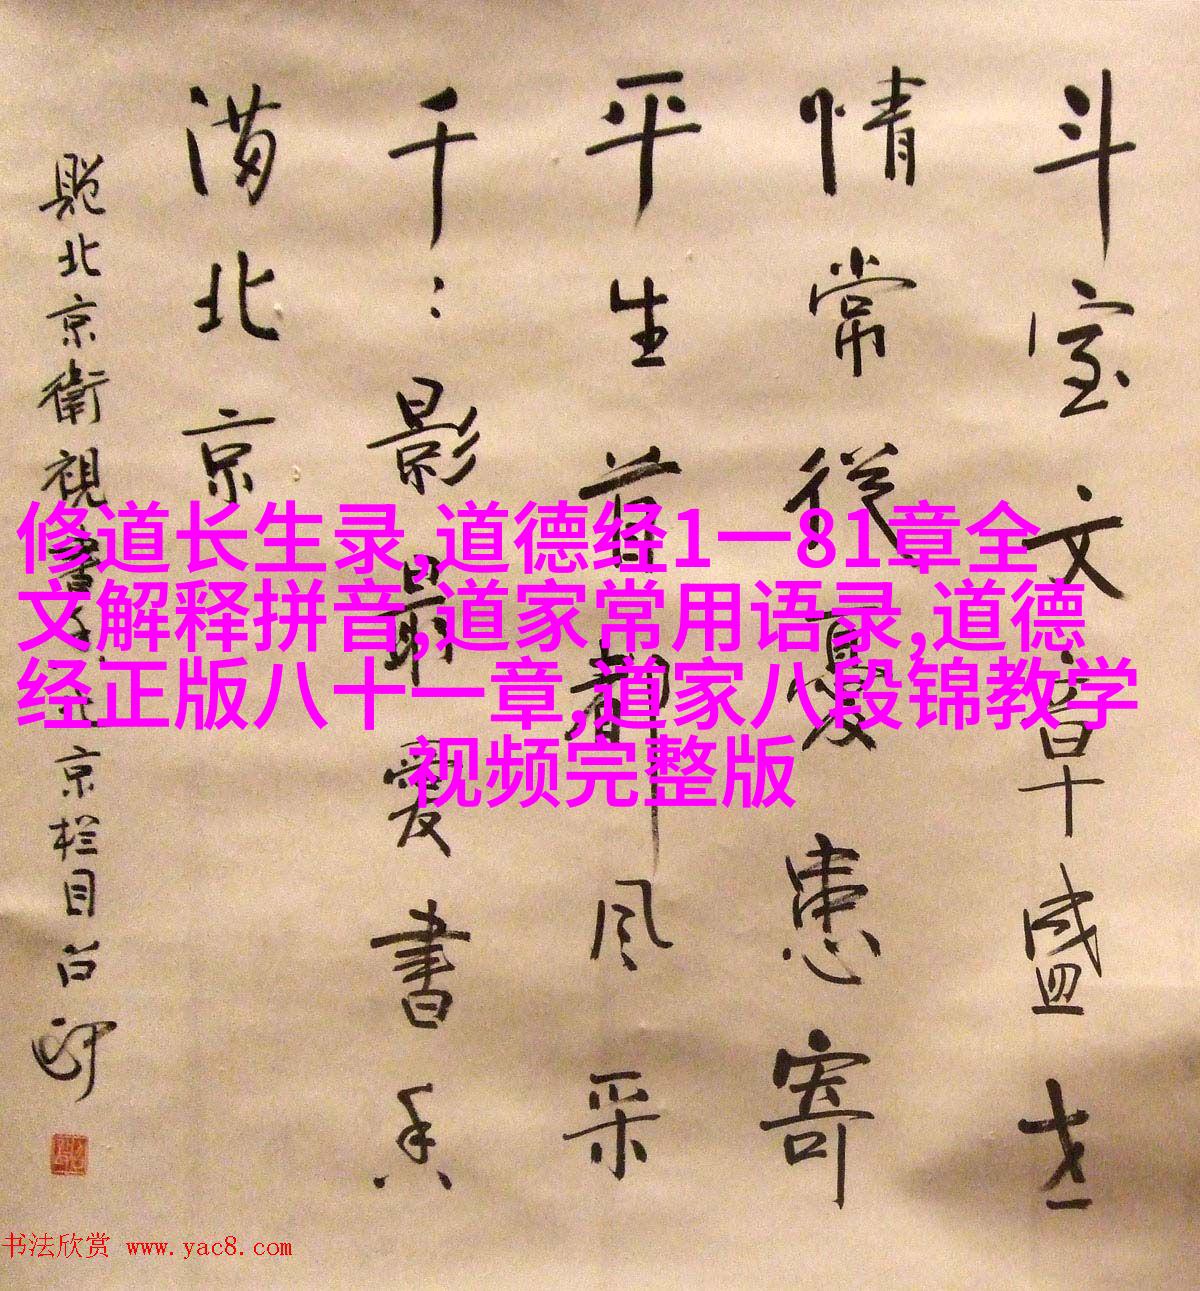 斗室文章盛世
情常從憂患寄
平生首都風采
千:影最愛書香
满北京
题北京衛視書香北京栏目
修道长生录,道德经1一81章全
文解释拼音,道家常用语录,道德
经正版八十一章,道家八段锦教学
视频完整版
书法欣赏 www.yac8.com